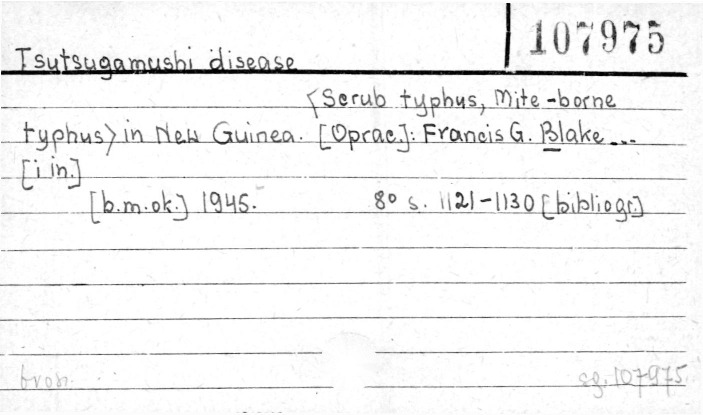 107975
Tsutsugamushi disease
<Scrub typhus, Mite-borne
typhus> in New Guinea. [Oprac.]: Francis G. Blake ...
[i in.]
[b.m.ok.] 1945. 8° s. 1121-1130 [bibliogr.]
bron.
sg. 107975